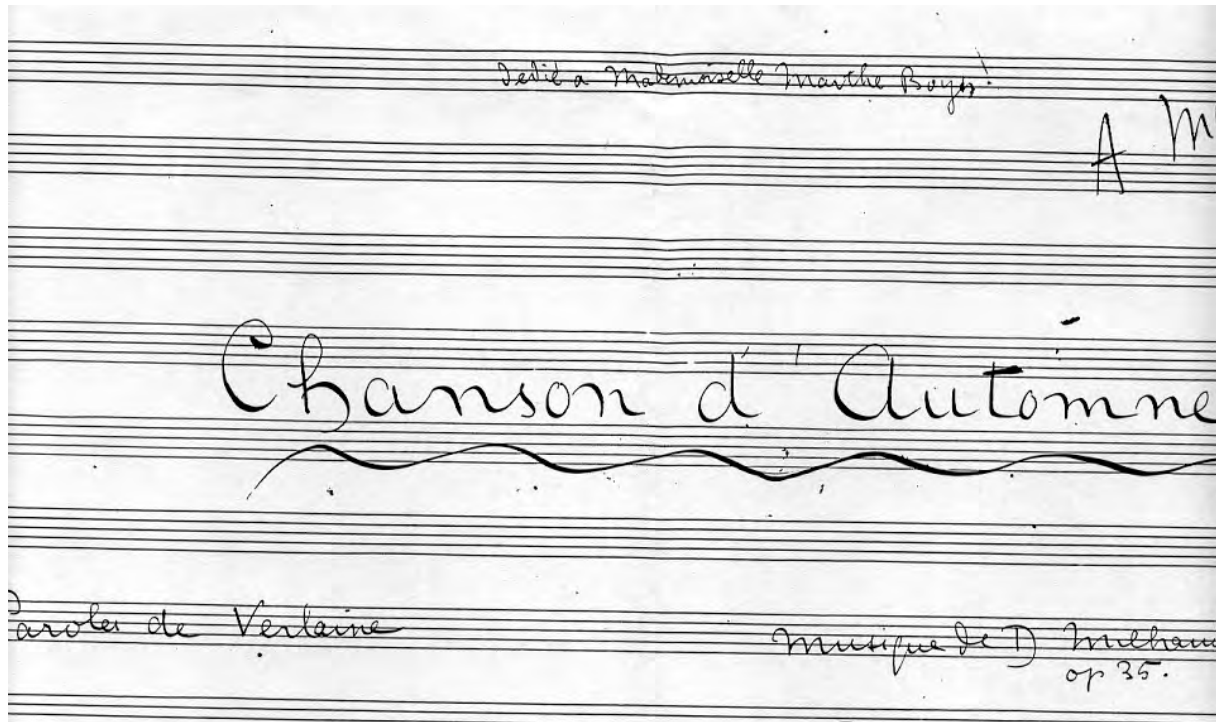 Dédié a Mademoiselle Marthe
A M
Chanson d'Automne
Paroles de Verlaine
Musique de D Milhau
op 35.